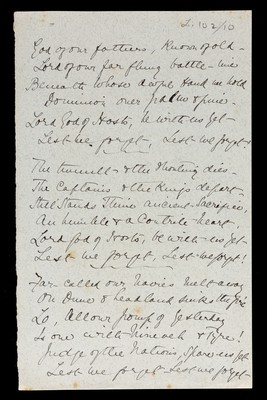 L: 102/10
God of our fathers, known of old –
Lord of our far flung battle-line
Beneath whose awful Hand we hold
Dominion over palm & pine –
Lord God of Hosts, be with us yet
Lest we forget, Lest we forget
The tumult & the shouting dies –
The Captains & the Kings depart
Still Stands Thine ancient Sacrifice,
An humble & a Contrite heart.
Lord God of Hosts, be with us yet
Lest we forget, Lest we forget!
Far called our Navies melt away
On Dune & headland sinks the fire
Lo, all our pomp of yesterday
Is one with Nineveh & Tyre!
Judge of the Nations, Spare us yet
Lest we forget Lest we forget